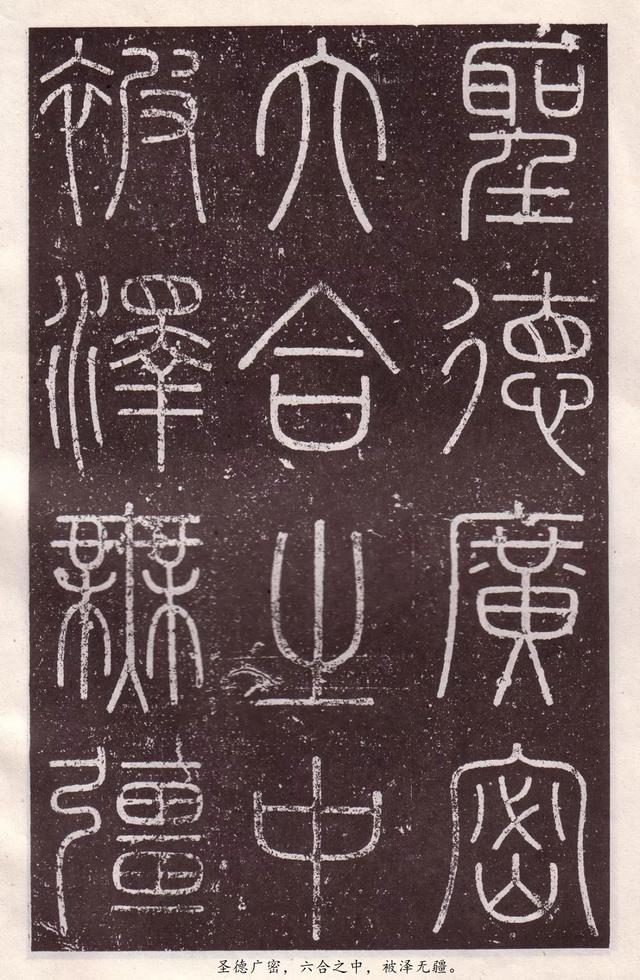 聖德廣密
六合之中
被澤無彊
圣德广密，六合之中，被泽无疆。